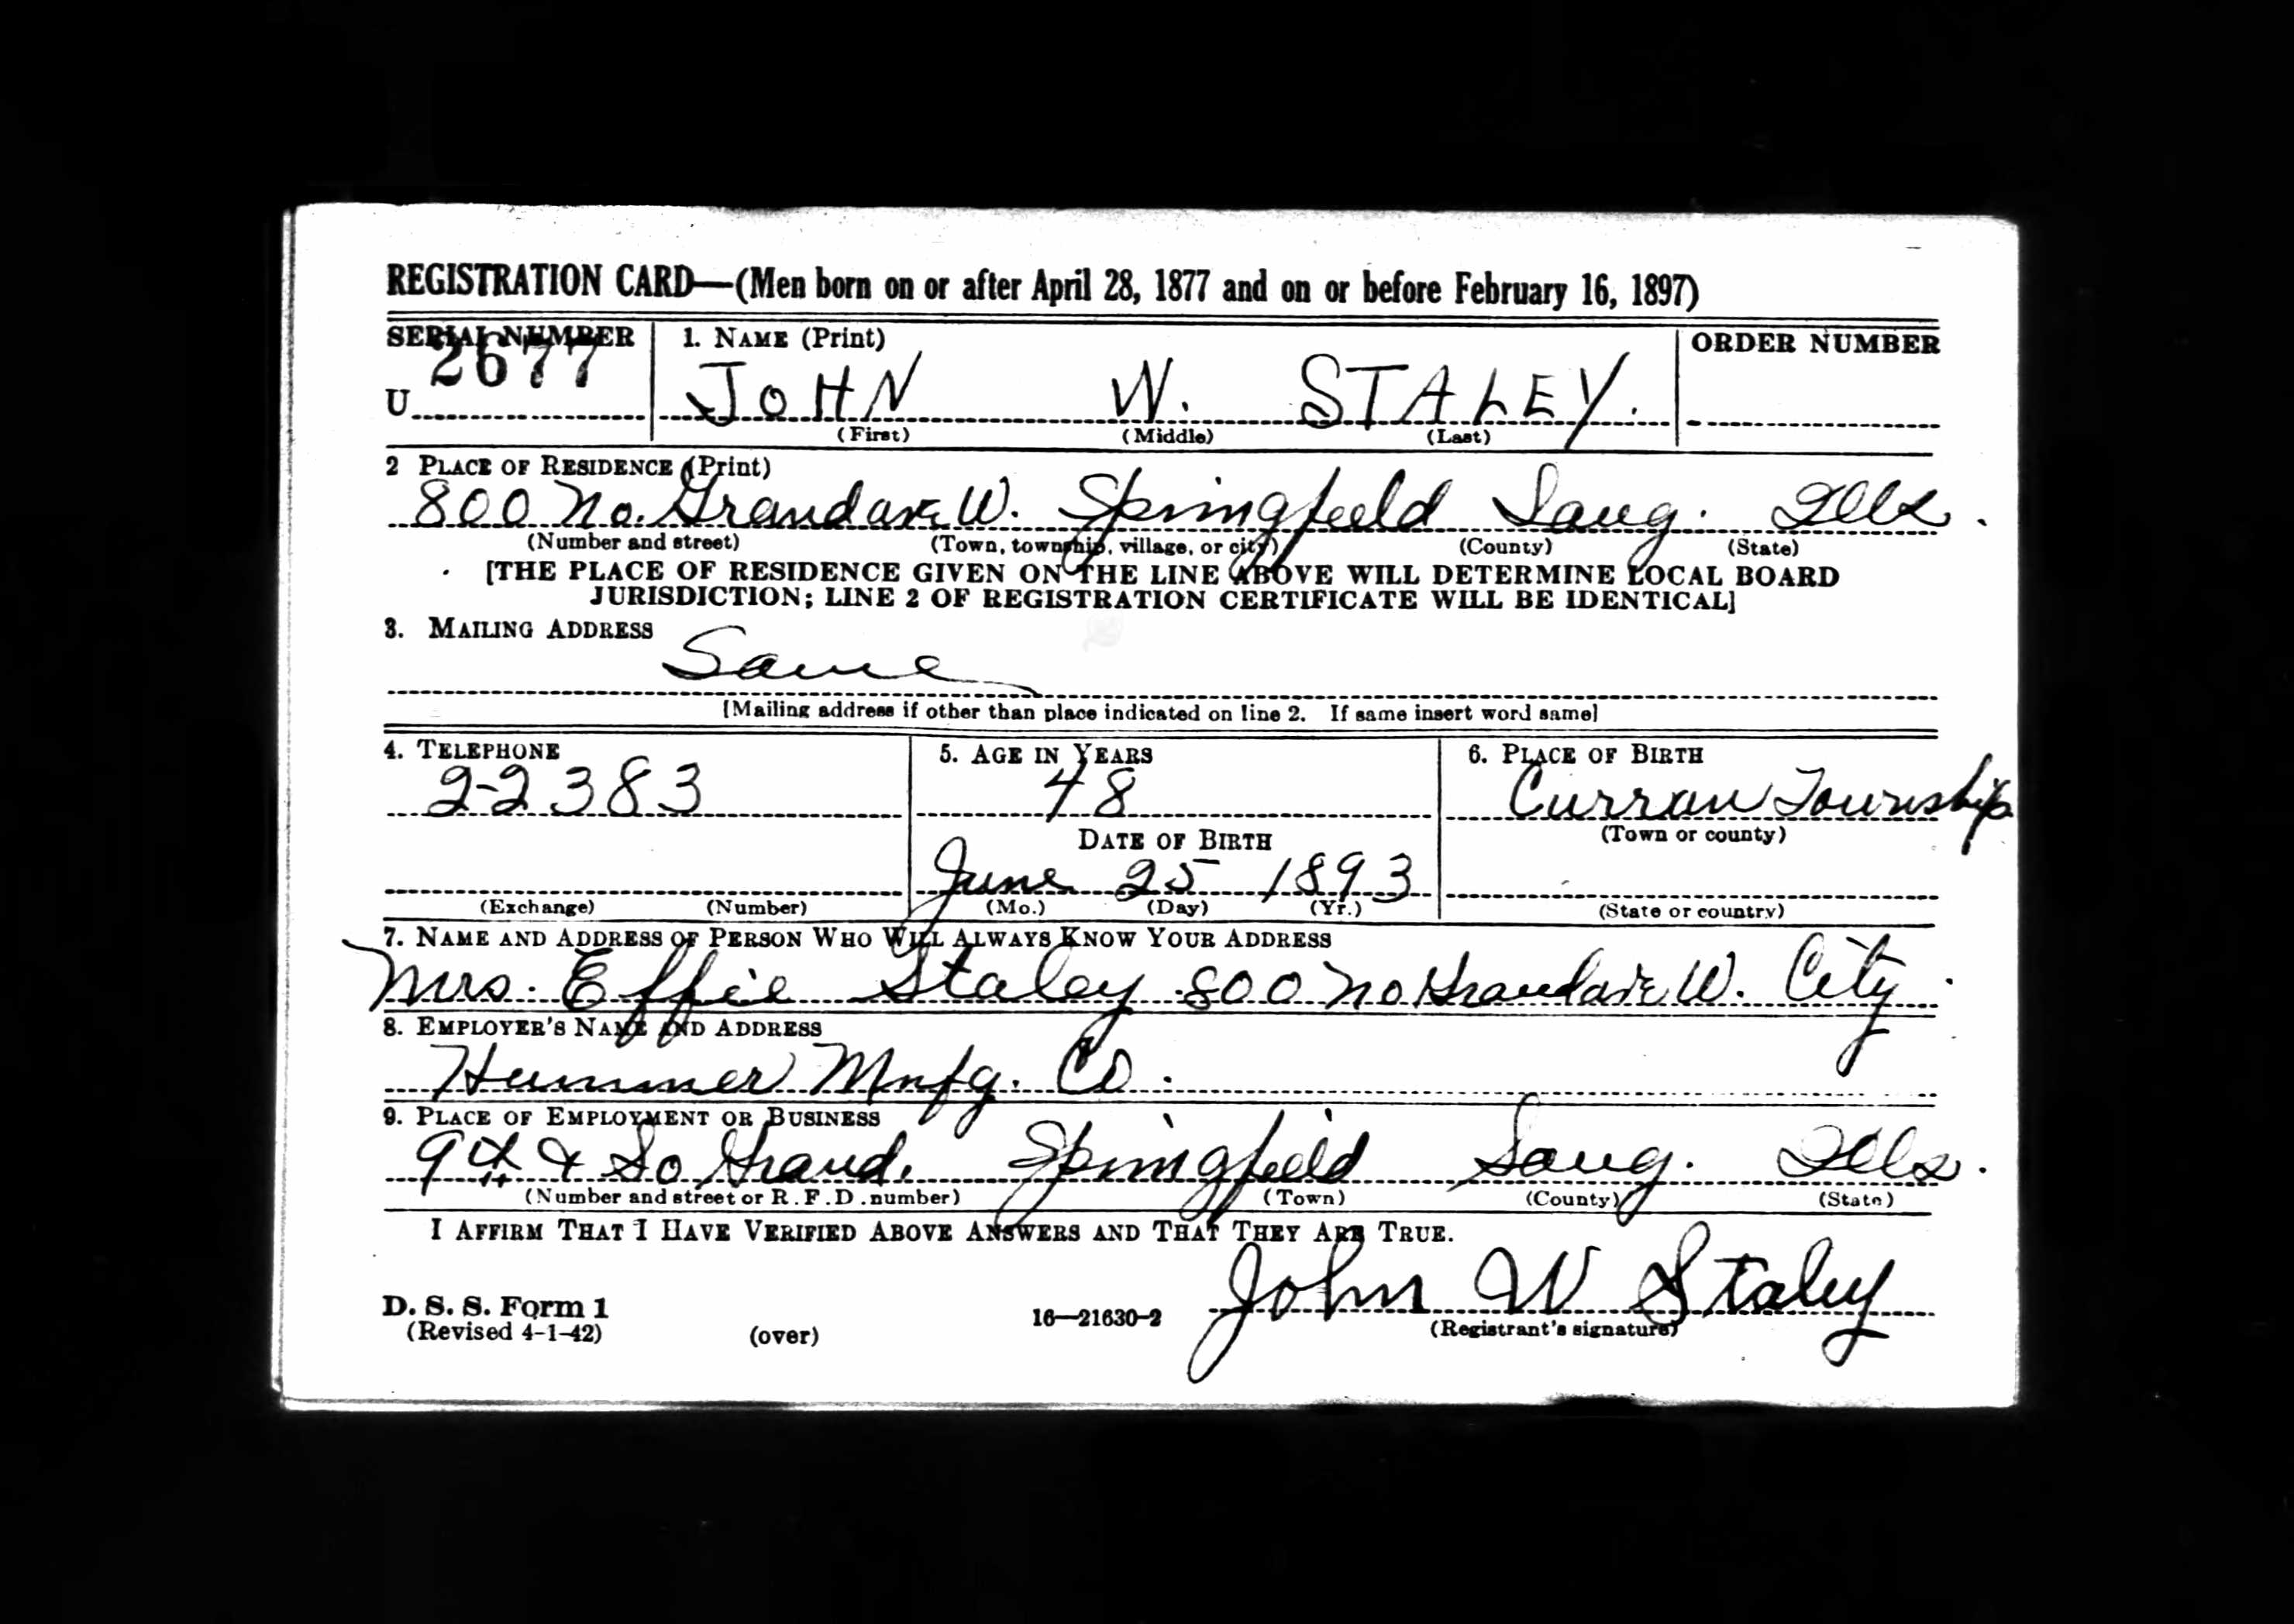 REGISTRATION CARD—(Men born on or after April 28, 1877 and on or before February 16, 1897)
SERIAL NUMBER 1. NAME (Print) ORDER NUMBER
U 2677 JOHN W. STALEY.
(First) (Middle) (Last)
2 PLACE OF RESIDENCE (Print)
800 No. Grand ave W. Springfield Sang. Ills.
(Number and street) (Town, township, village, or city) (County) (State)
[THE PLACE OF RESIDENCE GIVEN ON THE LINE ABOVE WILL DETERMINE LOCAL BOARD
JURISDICTION; LINE 2 OF REGISTRATION CERTIFICATE WILL BE IDENTICAL]
3. MAILING ADDRESS
Same
[Mailing address if other than place indicated on line 2. If same insert word same]
4. TELEPHONE 5. AGE IN YEARS 6. PLACE OF BIRTH
2-2383 48 Curran Township
DATE OF BIRTH (Town or county)
June 25 1893
(Exchange) (Number) (Mo.) (Day) (Yr.) (State or country)
7. NAME AND ADDRESS OF PERSON WHO WILL ALWAYS KNOW YOUR ADDRESS
Mrs. Effie Staley 800 No Grand ave W. City.
8. EMPLOYER'S NAME AND ADDRESS
Hummer Mnfg. Co.
9. PLACE OF EMPLOYMENT OR BUSINESS
9th & So Grand. Springfield Sang. Ills.
(Number and street or R. F. D. number) (Town) (County) (State)
I AFFIRM THAT I HAVE VERIFIED ABOVE ANSWERS AND THAT THEY ARE TRUE.
John W Staley
D. S. S. Form 1 16—21630-2 (Registrant's signature)
(Revised 4-1-42) (over)